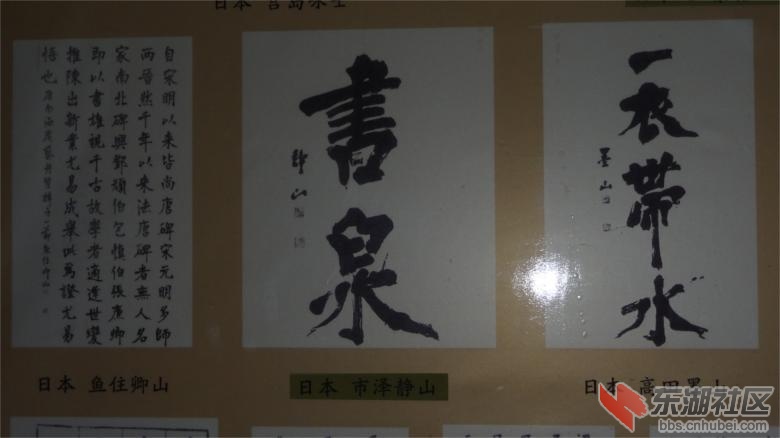 日本
自宋明以来皆尚唐碑宋元明多師
两晋然千年以来法唐碑者無人名
家南北碑興鄧頑伯包慎伯張廉卿
即以書雄視千古故學者適逢世變
推陳出新業尤易成舉此為證尤易
悟也
書泉
一衣帶水
墨山
日本 鱼住卿山
日本 市泽静山
日本 高田墨山
东湖社区
bbs.cnhubei.com